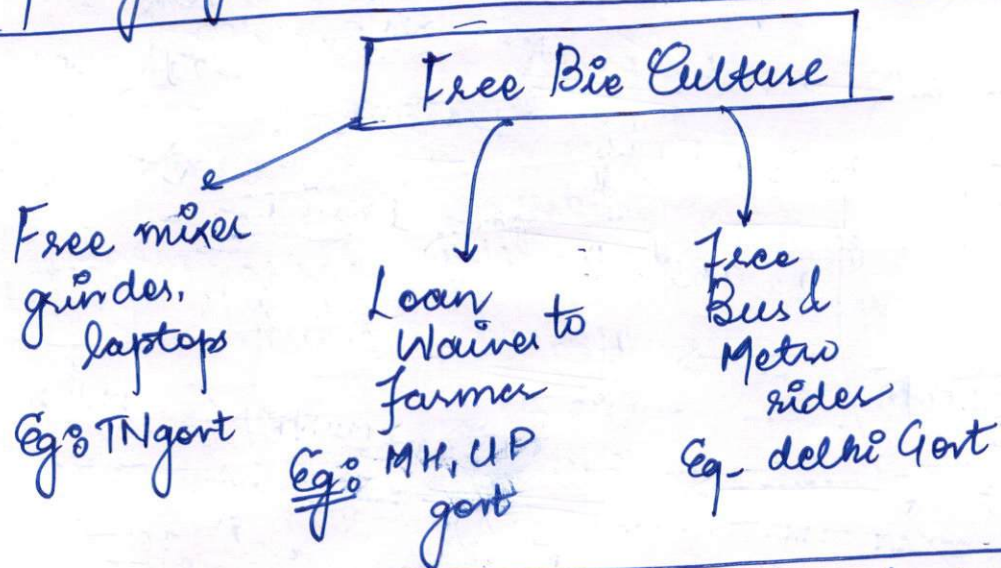 Free Bie Culture
Free mixer
grinder,
laptops
Eg: TN govt
Loan
Waiver to
farmer
Eg: MH, UP
govt
Free
Bus &
Metro
rides
Eg- delhi Govt